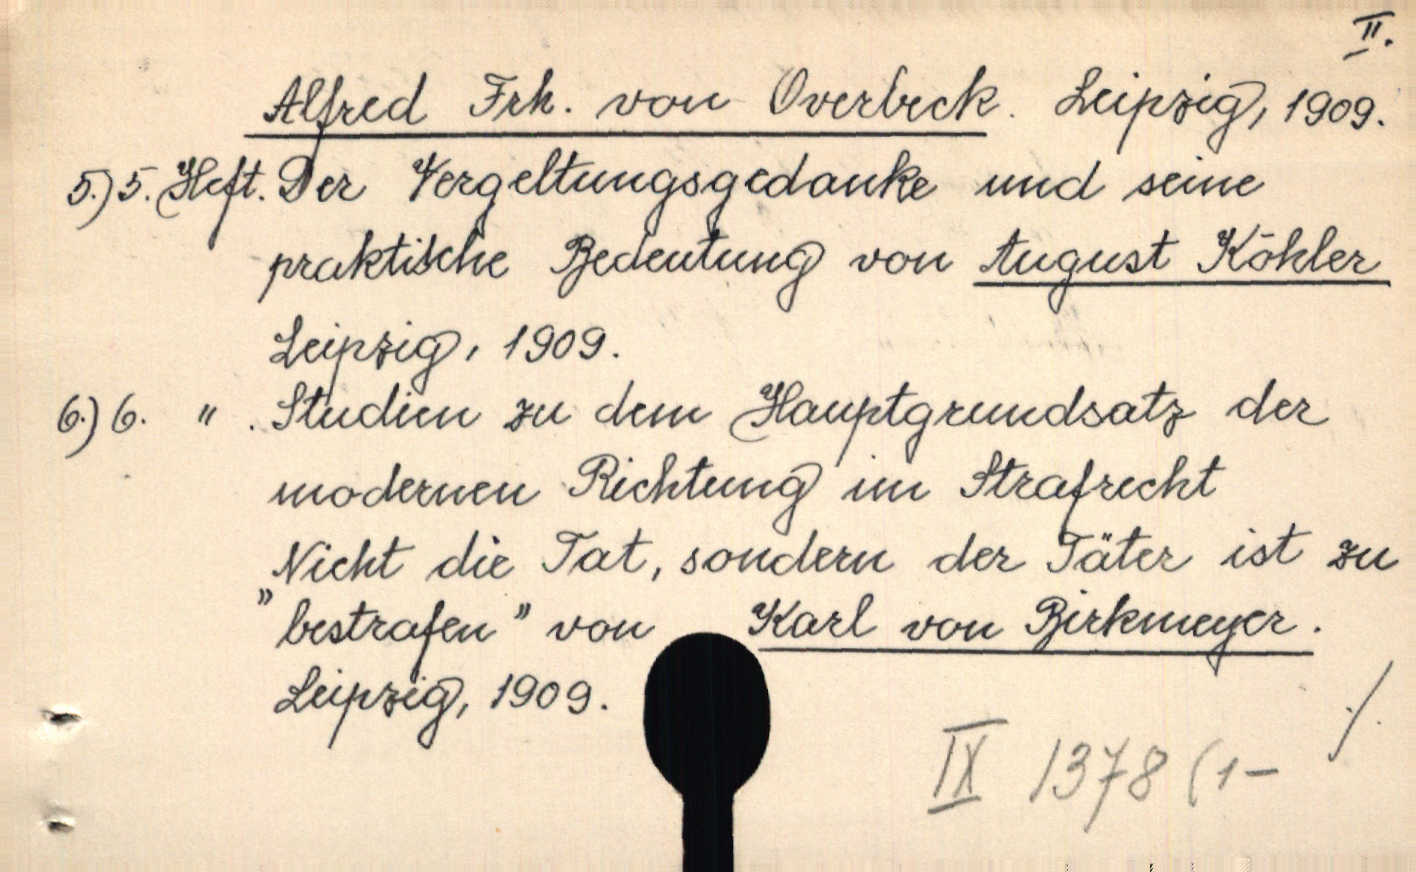 II.
Alfred Frh. von Overbeck. Leipzig, 1909.
5.) 5. Heft. Der Vergeltungsgedanke und seine
praktische Bedeutung von August Köhler
Leipzig, 1909.
6.) 6. " . Studien zu dem Hauptgrundsatz der
modernen Richtung im Strafrecht
Nicht die Tat, sondern der Täter ist zu
"bestrafen" von Karl von Birkmeyer.
Leipzig, 1909.
./.
IX 1378 (1-